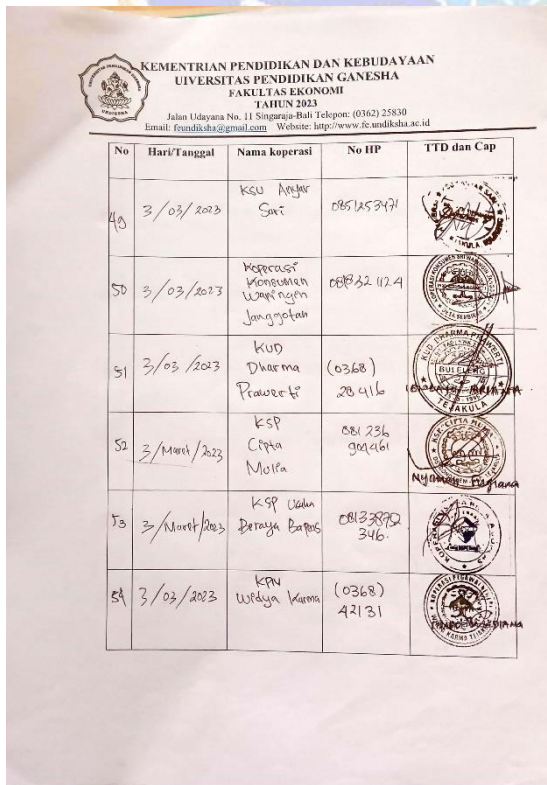 KEMENTRIAN PENDIDIKAN DAN KEBUDAYAAN
UIVERSITAS PENDIDIKAN GANESHA
FAKULTAS EKONOMI
TAHUN 2023
Jalan Udayana No. 11 Singaraja-Bali Telepon: (0362) 25830
Email: feundiksha@gmail.com Website: http://www.fe.undiksha.ac.id
No Hari/Tanggal Nama koperasi No HP TTD dan Cap
49 3/03/2023 KSU Anyar
Sari
0851253471
50 3/03/2023 Koperasi
Konsumen
Waringin
Janggotan
51 3/03/2023 KUD
Dharma
Prawerti
(0368)
28416
KUD DHARMA PRAWERTI
BULELENG
TEJAKULA
52 3/Maret/2023 KSP
Cipta
Mulia
081 236
904461
KSP. CIPTA MULIA
Nyoman
53 3/Maret/2023 KSP
Beraya
346.
54 3/03/2023 KPN
Widya Karma
(0368)
42131